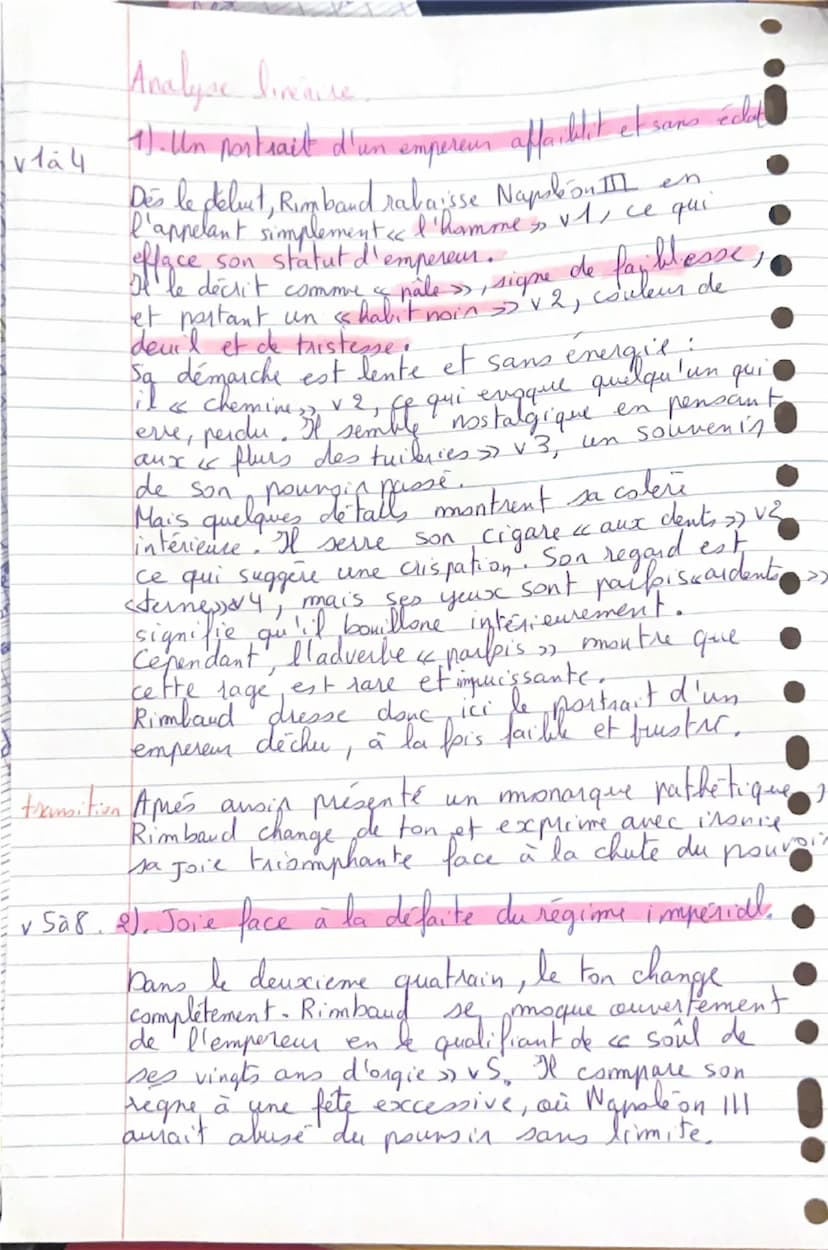 Analyse linéaire.
1). Un portrait d'un empereur affaiblit et sans éclat
v 1 à 4
Dès le début, Rimbaud rabaisse Napoléon III en
l'appelant simplement « l'homme » v1, ce qui
efface son statut d'empereur.
Il le décrit comme « pâle », signe de faiblesse,
et portant un « habit noir » v 2, couleur de
deuil et de tristesse.
Sa démarche est lente et sans énergie :
il « chemine » v 2, ce qui evoque quelqu'un qui
erre, perdu. Il semble nostalgique en pensant
aux « flurs des tuileries » v 3, un souvenir
de son pouvoir passé.
Mais quelques détails montrent sa colère
intérieuse. Il serre son cigare « aux dents » v2
ce qui suggère une crispation. Son regard est
« terne » v4, mais ses yeux sont parfois « ardents »
signifie qu'il bouillone intérieurement.
Cependant, l'adverbe « parfois » montre que
cette rage est rare et impuissante.
Rimbaud dresse donc ici le portrait d'un
empereur déchu, à la fois faible et frustré.
transition Aprés avoir présenté un monarque pathétique,
Rimbaud change de ton et exprime avec ironie
sa joie triomphante face à la chute du pouvoir
v 5 à 8. 2). Joie face à la défaite du régime impérial.
Dans le deuxieme quatrain, le ton change
complétement. Rimbaud se moque ouvertement
de l'empereur en le qualifiant de « soûl de
ses vingts ans d'orgie » v5. Il compare son
règne à une fête excessive, où Napoléon III
aurait abusé du pouvoir sans limite.